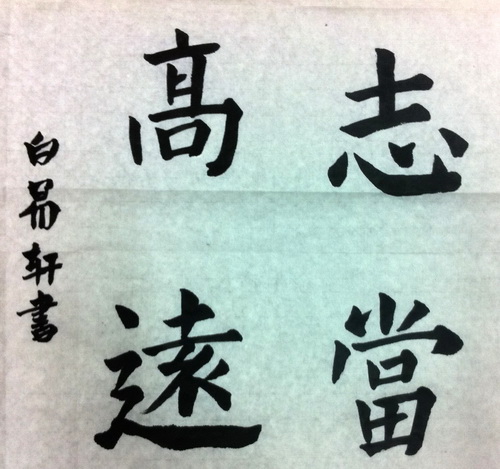 志當
高遠
白易軒書